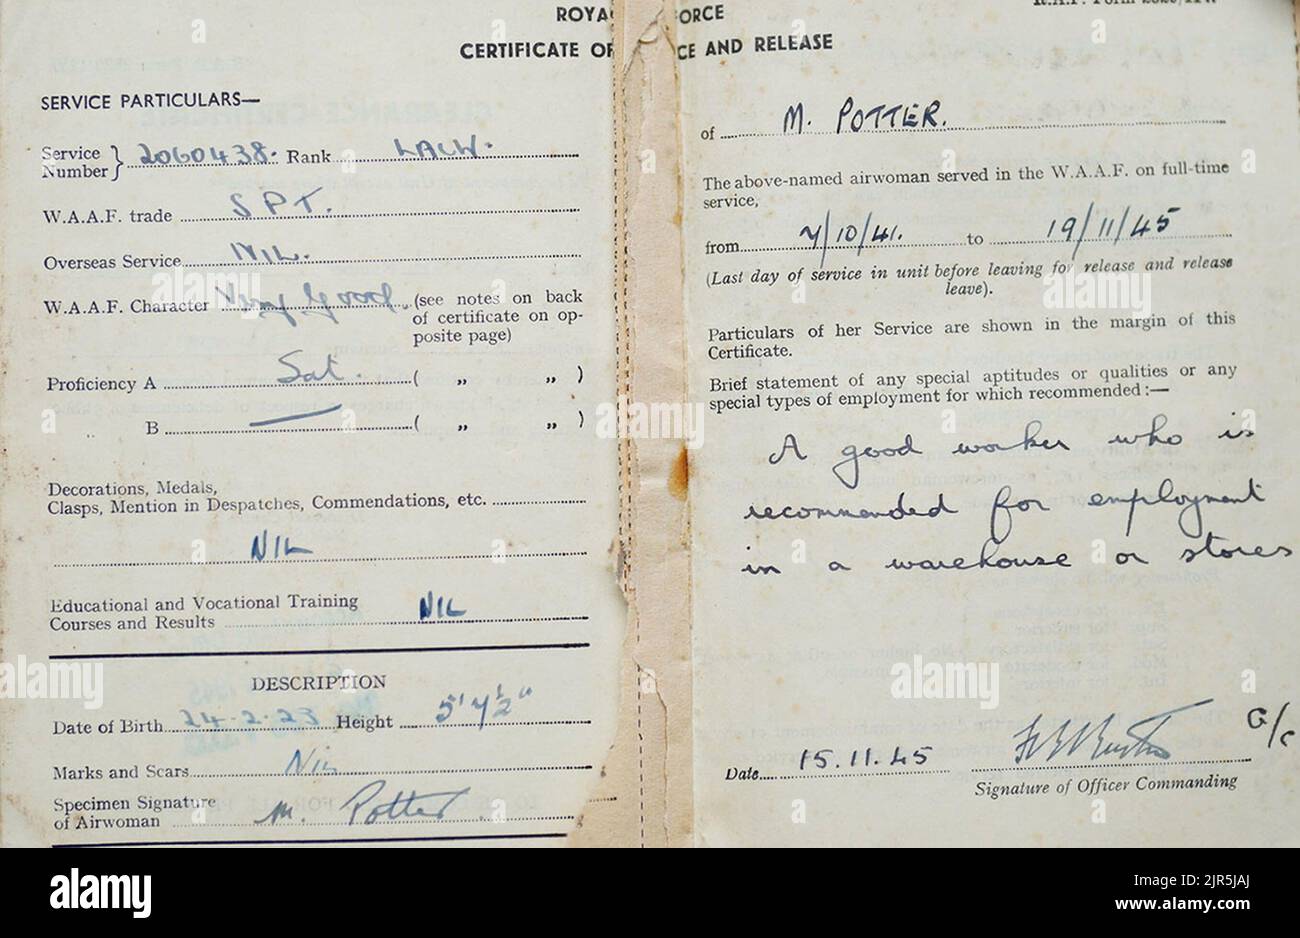 ROYA FORCE
CERTIFICATE OF CE AND RELEASE
SERVICE PARTICULARS—
Service Number } 2060438. Rank LACW.
W.A.A.F. trade S P T.
Overseas Service NIL.
W.A.A.F. Character Very Good. (see notes on back
of certificate on op-
posite page)
Proficiency A Sat. ( „ „ )
B — ( „ „ )
Decorations, Medals,
Clasps, Mention in Despatches, Commendations, etc.
NIL
Educational and Vocational Training
Courses and Results NIL
DESCRIPTION
Date of Birth 24-2-23 Height 5' 4½"
Marks and Scars NIL
Specimen Signature
of Airwoman M. Potter
of M. POTTER.
The above-named airwoman served in the W.A.A.F. on full-time
service,
from 7/10/41. to 19/11/45
(Last day of service in unit before leaving for release and release
leave).
Particulars of her Service are shown in the margin of this
Certificate.
Brief statement of any special aptitudes or qualities or any
special types of employment for which recommended:—
A good worker who is
recommended for employment
in a warehouse or stores
G/C
Date 15.11.45
Signature of Officer Commanding
alamy
Image ID: 2JR5JAJ
www.alamy.com